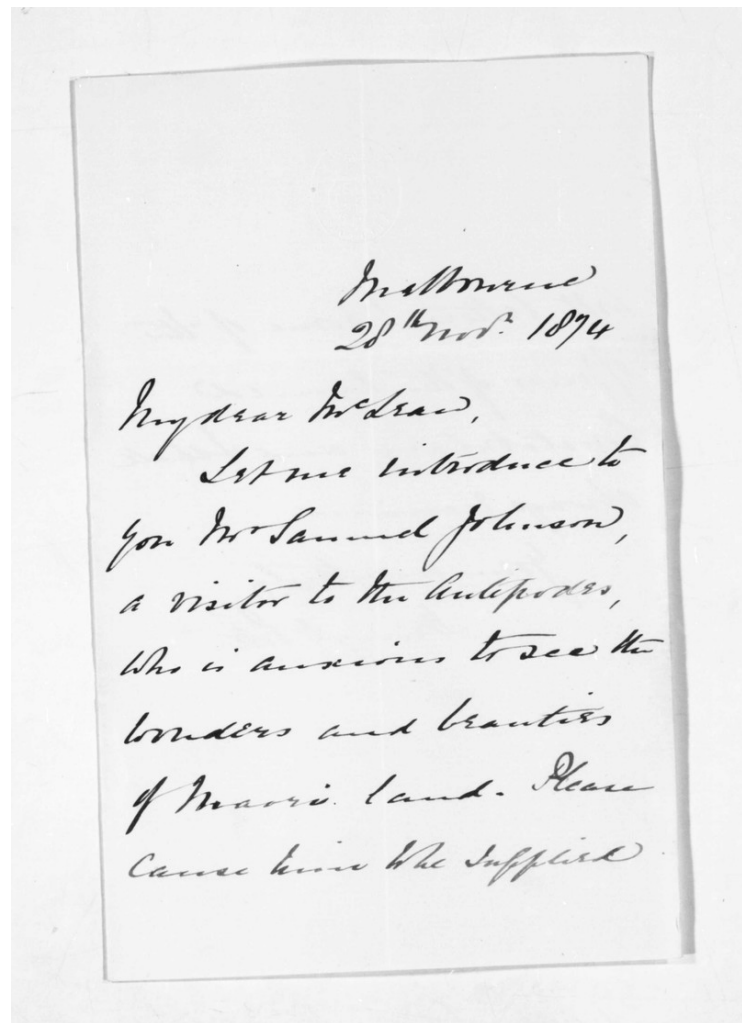 Melbourne
28th Novr. 1874
My dear McLean,
Let me introduce to
you Mr Samuel Johnson,
a visitor to the Antipodes,
who is anxious to see the
wonders and beauties
of Maori land. Please
cause him to be supplied